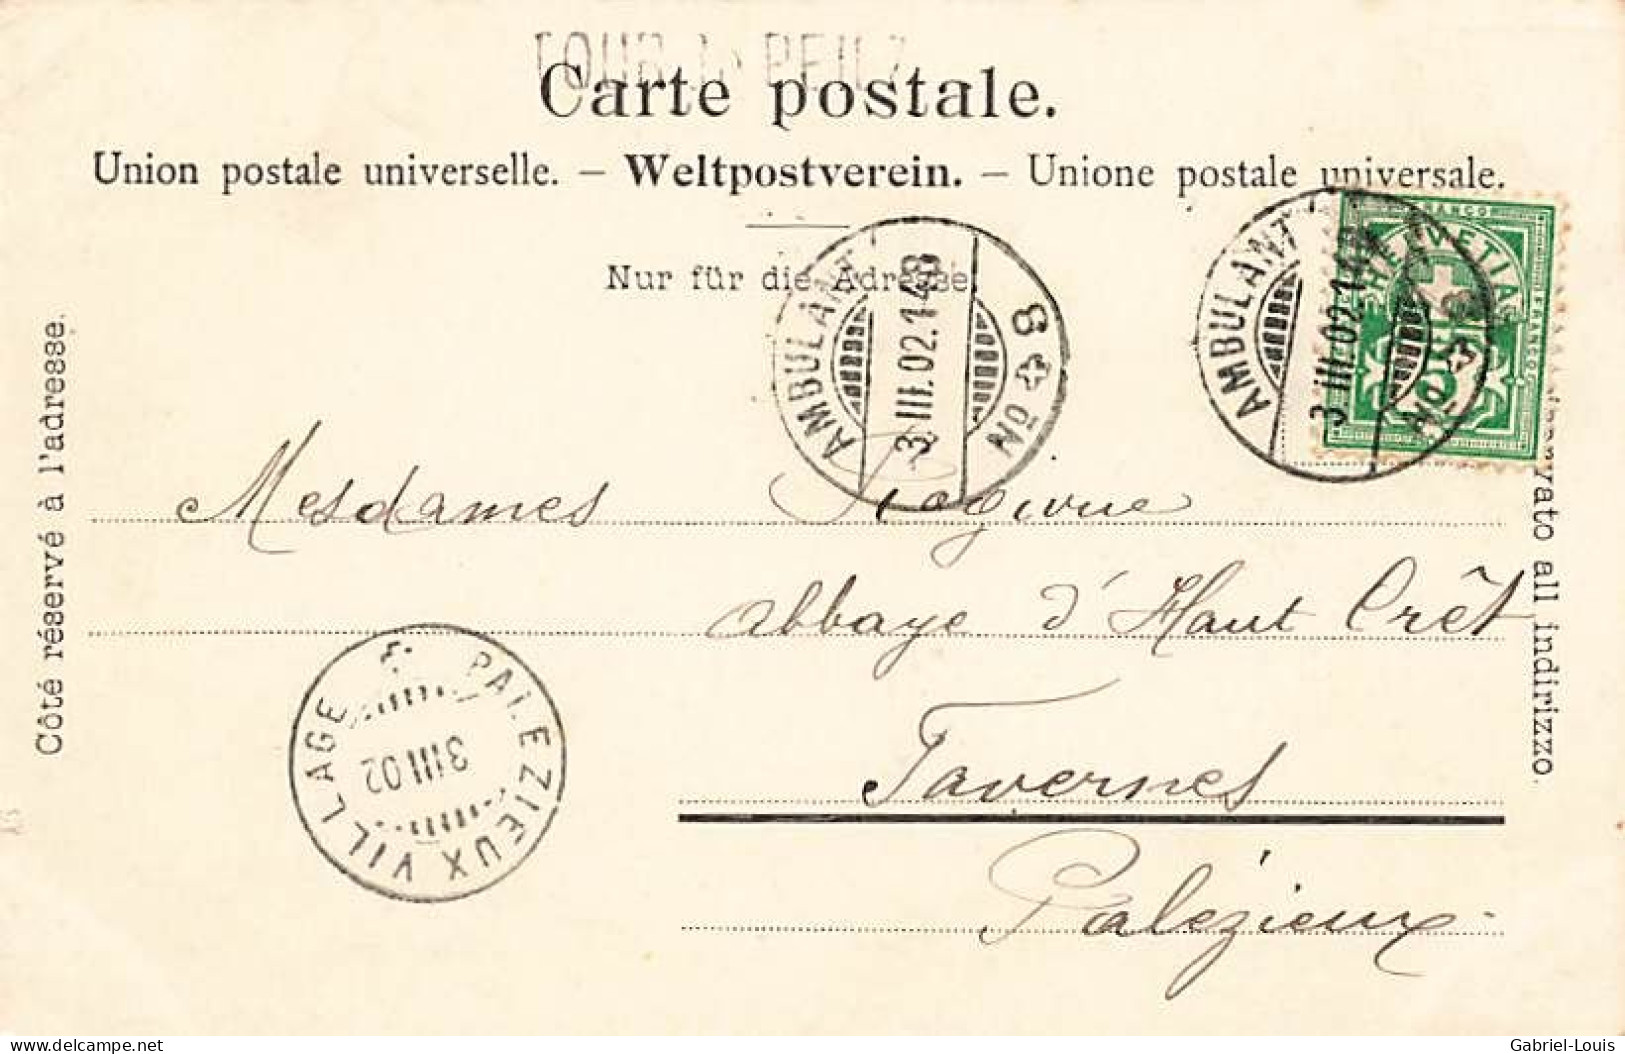 TOUR DE PEILZ
Carte postale.
Union postale universelle. – Weltpostverein. – Unione postale universale.
Nur für die Adresse
Côté réservé à l'adresse.
all indirizzo.
AMBULANT
3.III.02.1
No 8
AMBULANT
3.III.02.1
No
FRANCO
HELVETIA
FRANCO
5
Mesdames
abbaye d'Haut Crêt
Tavernes
Palézieux
PALEZIEUX VILLAGE
3 III 02
www.delcampe.net
Gabriel-Louis